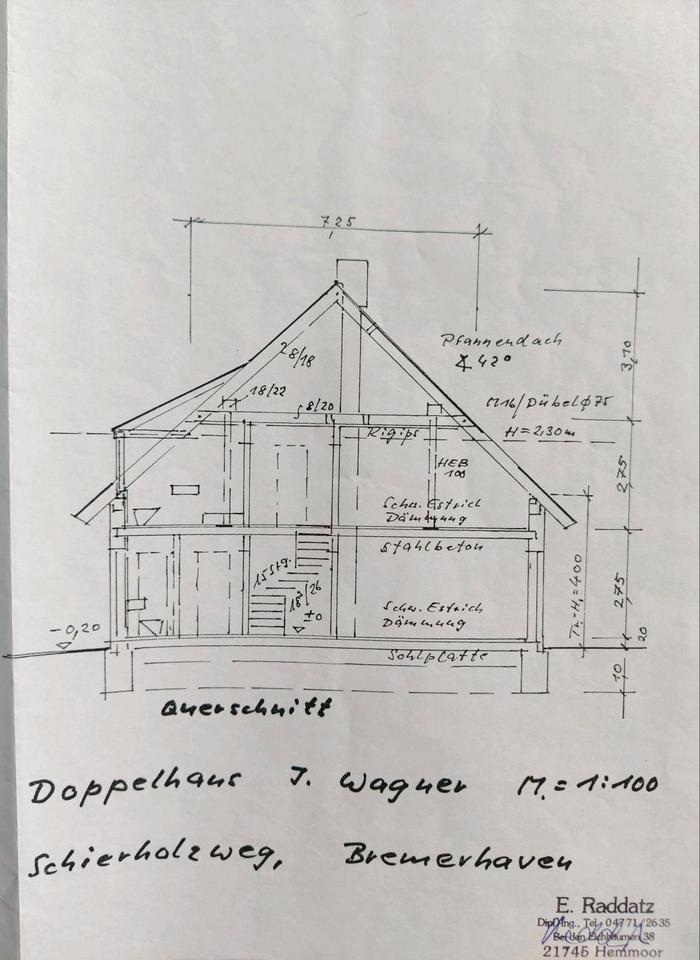 725
28/18
Pfannendach
∡ 42°
3,10
18/22
8/20
M16/Dübel ϕ 75
Rigips
H = 2,30m
HEB
100
275
Schw. Estrich
Dämmung
Stahlbeton
15 Stg.
18²/26
±0
Tr.-H. = 400
275
Schw. Estrich
Dämmung
-0,20
20
Sohlplatte
10
Querschnitt
Doppelhaus J. Wagner M. = 1:100
Schierholzweg, Bremerhaven
E. Raddatz
Dipl.-Ing., Tel. 04771/2635
Bei den Eichbäumen 38
21745 Hemmoor